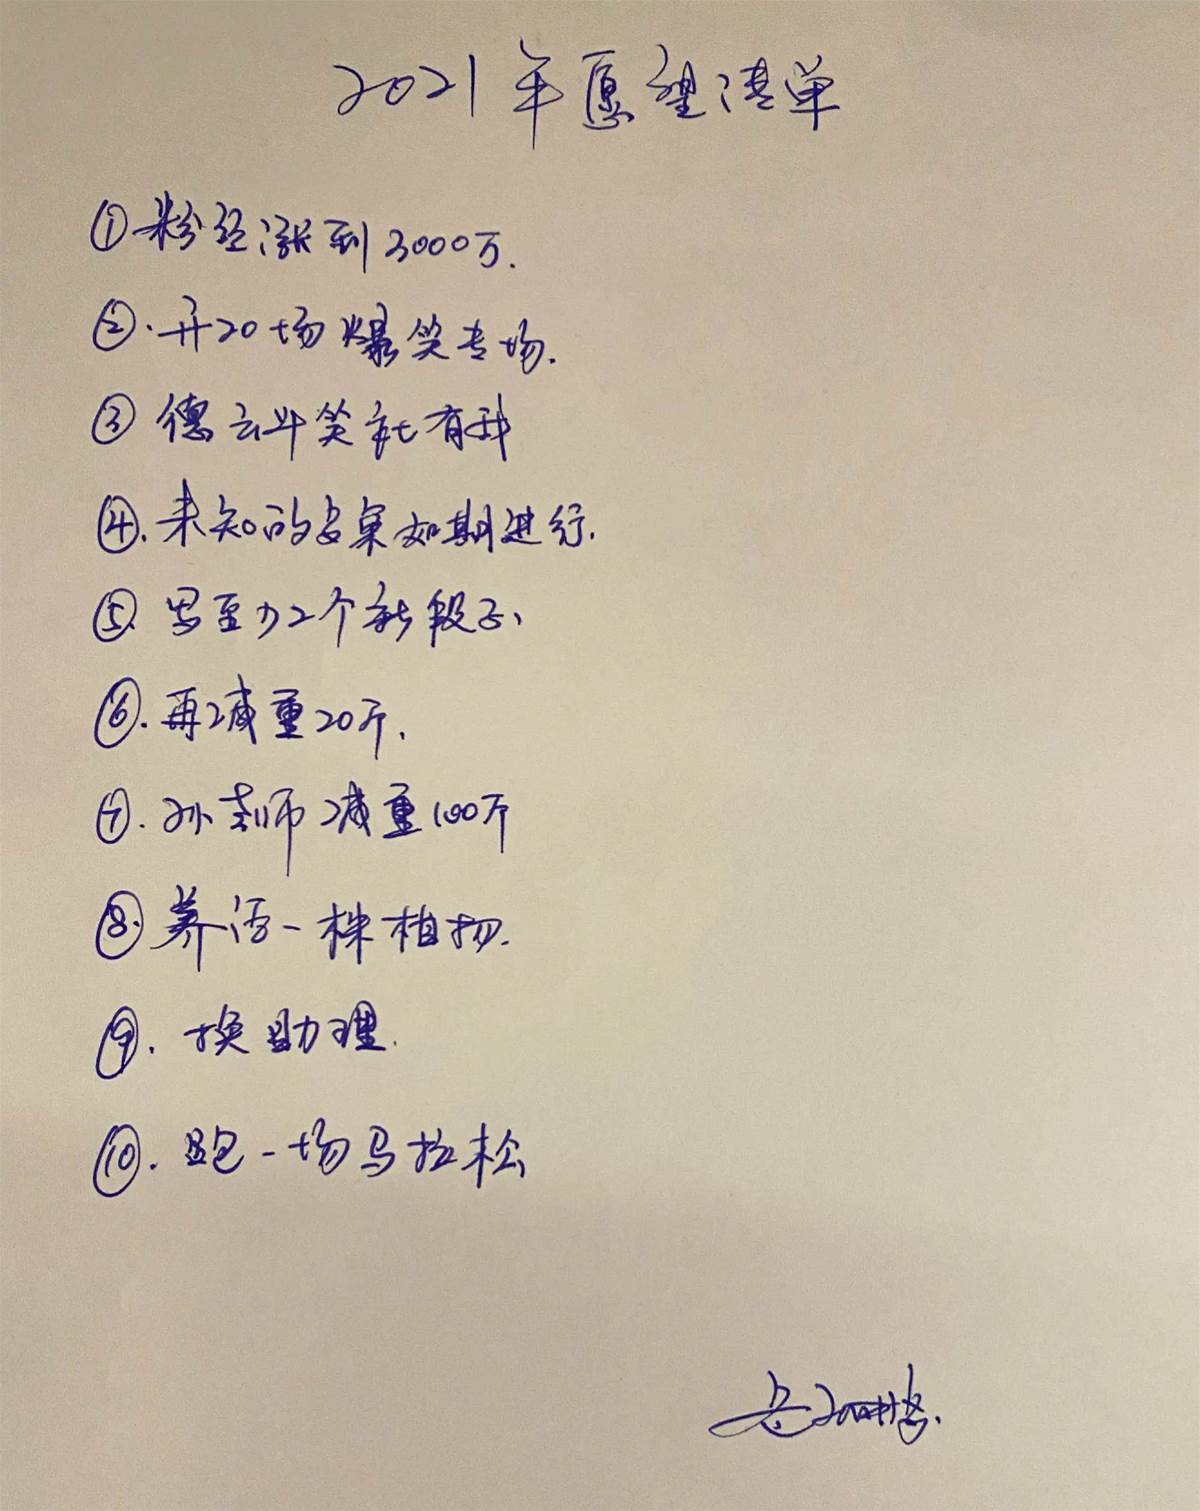 2021年愿望清单
①粉丝涨到3000万.
②.开20场爆笑专场.
③德云斗笑社有我
④.未知的专案如期进行.
⑤写至少2个新段子、
⑥.再减重20斤、
⑦.孙老师减重100斤
⑧养活一株植物.
⑨.换助理.
⑩.跑一场马拉松
岳云鹏.